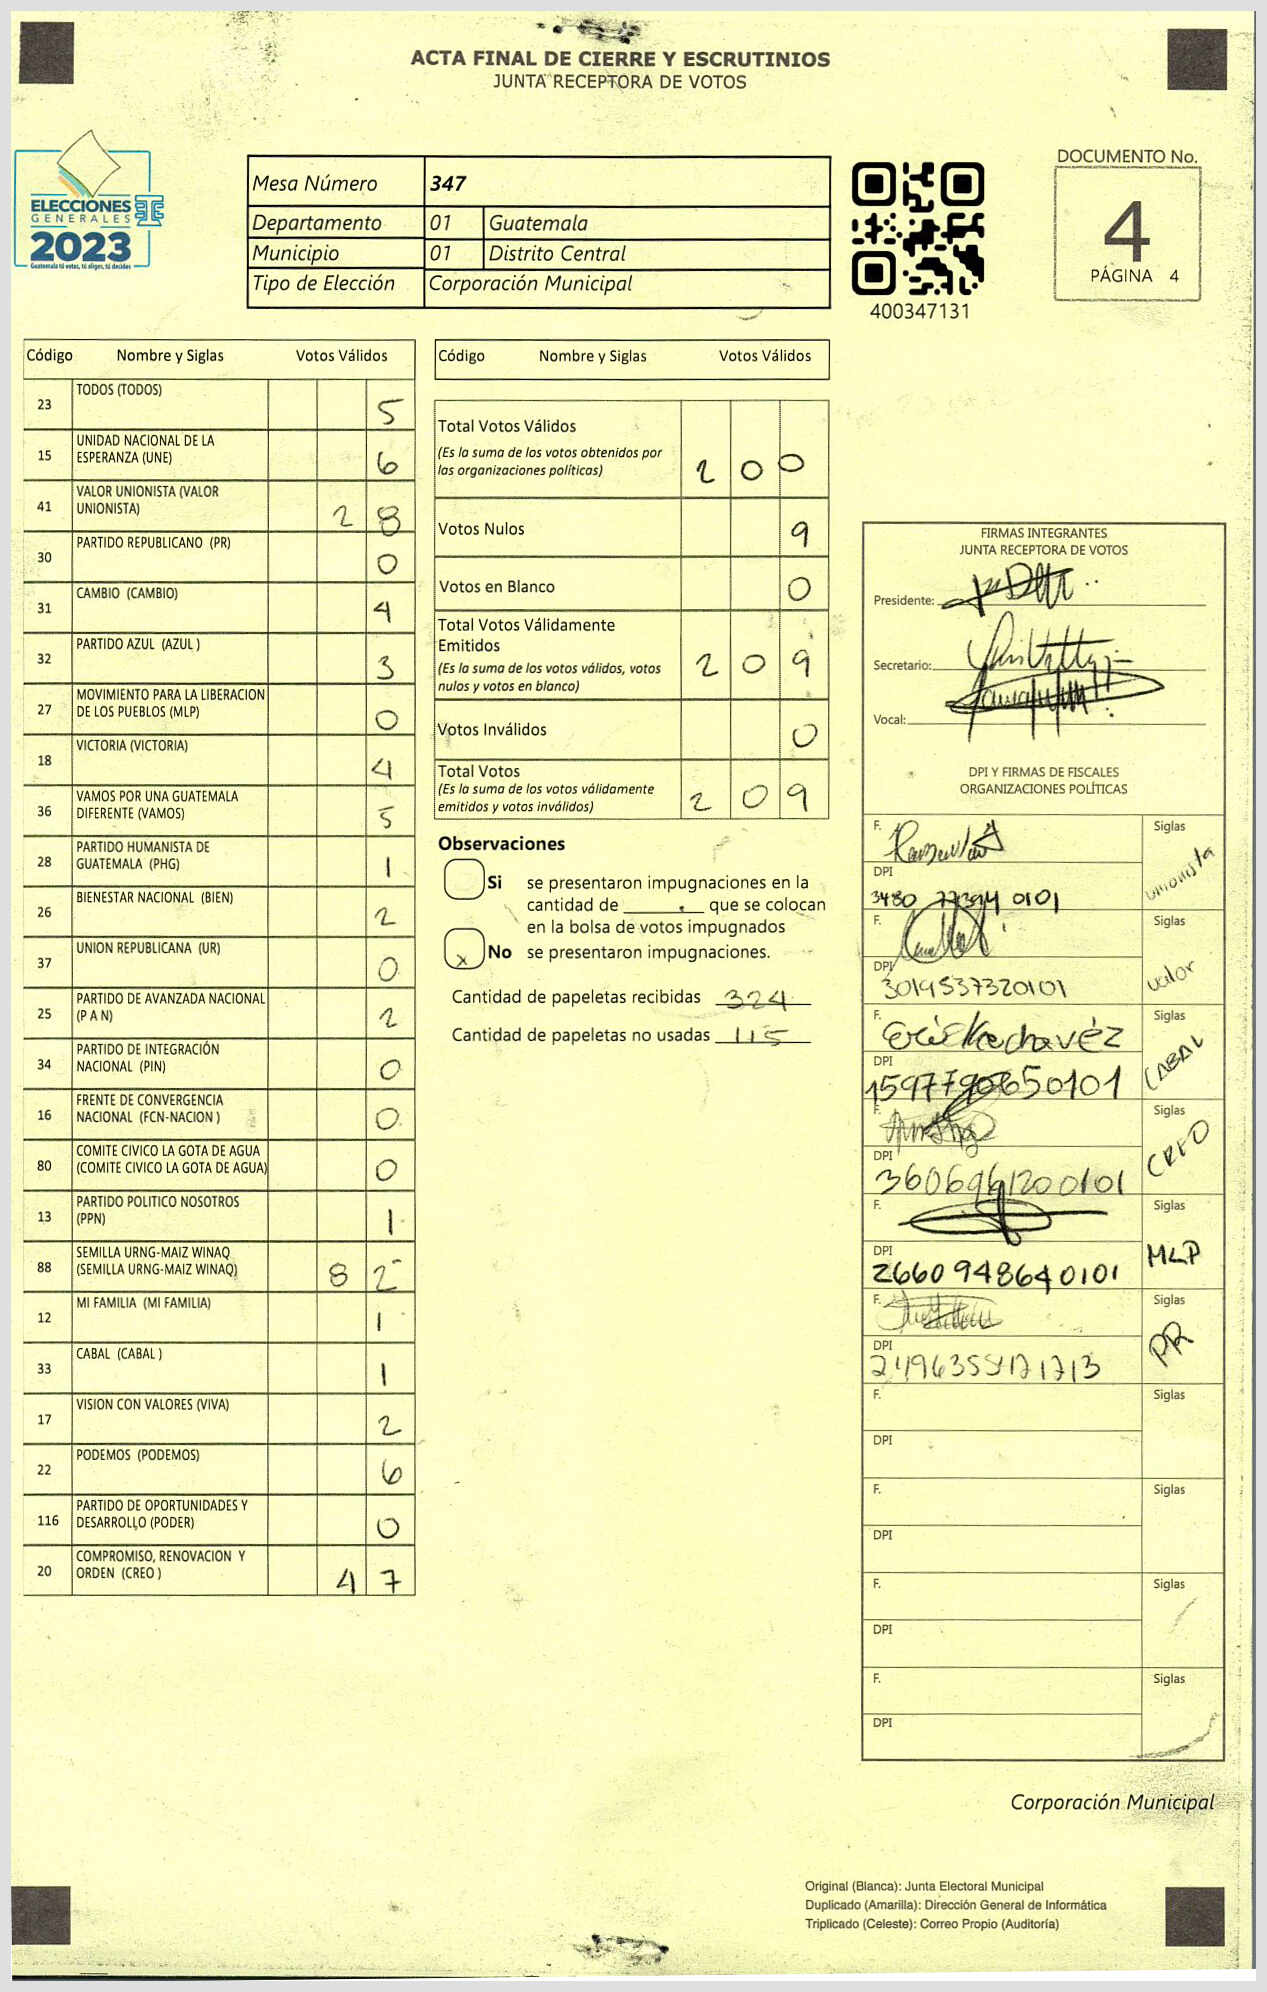 ACTA FINAL DE CIERRE Y ESCRUTINIOS
JUNTA RECEPTORA DE VOTOS
ELECCIONES
GENERALES
2023
Guatemala tú votas, tú eliges, tú decides
Mesa Número 347
Departamento 01 Guatemala
Municipio 01 Distrito Central
Tipo de Elección Corporación Municipal
400347131
DOCUMENTO No.
4
PÁGINA 4
Código Nombre y Siglas Votos Válidos
23 TODOS (TODOS) 5
15 UNIDAD NACIONAL DE LA
ESPERANZA (UNE) 6
41 VALOR UNIONISTA (VALOR
UNIONISTA) 2 8
30 PARTIDO REPUBLICANO (PR) 0
31 CAMBIO (CAMBIO) 4
32 PARTIDO AZUL (AZUL ) 3
27 MOVIMIENTO PARA LA LIBERACION
DE LOS PUEBLOS (MLP) 0
18 VICTORIA (VICTORIA) 4
36 VAMOS POR UNA GUATEMALA
DIFERENTE (VAMOS) 5
28 PARTIDO HUMANISTA DE
GUATEMALA (PHG) 1
26 BIENESTAR NACIONAL (BIEN) 2
37 UNION REPUBLICANA (UR) 0
25 PARTIDO DE AVANZADA NACIONAL
(P A N) 2
34 PARTIDO DE INTEGRACIÓN
NACIONAL (PIN) 0
16 FRENTE DE CONVERGENCIA
NACIONAL (FCN-NACION ) 0
80 COMITE CIVICO LA GOTA DE AGUA
(COMITE CIVICO LA GOTA DE AGUA) 0
13 PARTIDO POLITICO NOSOTROS
(PPN) 1
88 SEMILLA URNG-MAIZ WINAQ
(SEMILLA URNG-MAIZ WINAQ) 8 2
12 MI FAMILIA (MI FAMILIA) 1
33 CABAL (CABAL ) 1
17 VISION CON VALORES (VIVA) 2
22 PODEMOS (PODEMOS) 6
116 PARTIDO DE OPORTUNIDADES Y
DESARROLLO (PODER) 0
20 COMPROMISO, RENOVACION Y
ORDEN (CREO ) 4 7
Código Nombre y Siglas Votos Válidos
Total Votos Válidos
(Es la suma de los votos obtenidos por
las organizaciones políticas) 2 0 0
Votos Nulos 9
Votos en Blanco 0
Total Votos Válidamente
Emitidos
(Es la suma de los votos válidos, votos
nulos y votos en blanco) 2 0 9
Votos Inválidos 0
Total Votos
(Es la suma de los votos válidamente
emitidos y votos inválidos) 2 0 9
Observaciones
Si se presentaron impugnaciones en la
cantidad de ________ que se colocan
en la bolsa de votos impugnados
x No se presentaron impugnaciones.
Cantidad de papeletas recibidas 324
Cantidad de papeletas no usadas 115
FIRMAS INTEGRANTES
JUNTA RECEPTORA DE VOTOS
Presidente:
Secretario:
Vocal:
DPI Y FIRMAS DE FISCALES
ORGANIZACIONES POLÍTICAS
F. Siglas
unionista
DPI
0101
F. Siglas
valor
DPI
3019537320101
F. Siglas
CABAL
DPI
F. Siglas
CREO
DPI
F. Siglas
MLP
DPI
2660948640101
F. Siglas
PR
DPI
F. Siglas
DPI
F. Siglas
DPI
F. Siglas
DPI
F. Siglas
DPI
Corporación Municipal
Original (Blanca): Junta Electoral Municipal
Duplicado (Amarilla): Dirección General de Informática
Triplicado (Celeste): Correo Propio (Auditoría)